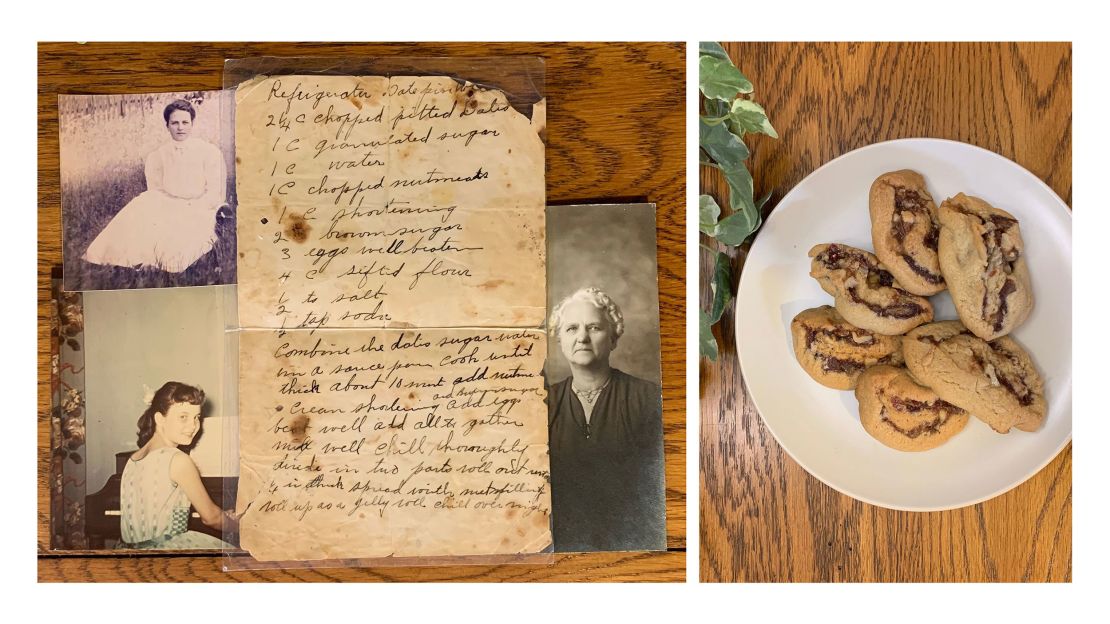 Refrigerater Date pinw
2 1/4 C chopped pitted Dates
1 C granulated sugar
1 C water
1 C chopped nutmeats
1 C shortening
2 " brown sugar
3 eggs well beaten
4 C sifted flour
1/2 ts salt
1/2 tsp soda
Combine the dates sugar water
in a sauce pan cook until
thick about 10 mint add nutme
and Brown sugar
Crean shortening add eggs
beat well add all to gather
mix well chill thoroughly
divide in two parts roll out
1/4 in thick spread with nut filling
roll up as a gelly roll chill over nigh